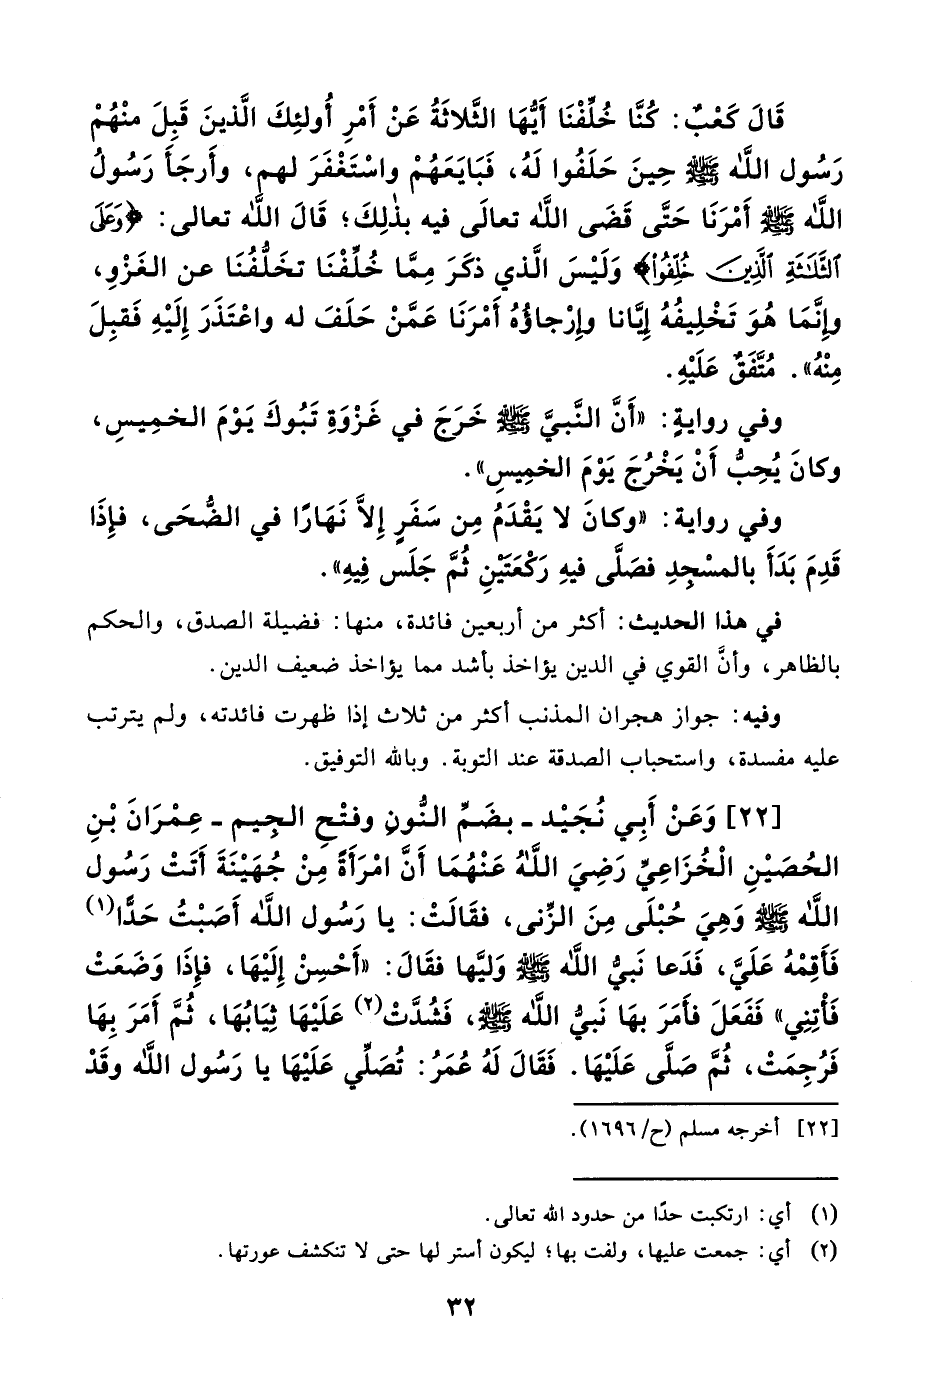 قَالَ كَعْبٌ: كُنَّا خُلِّفْنَا أَيُّهَا الثَّلاثَةُ عَنْ أَمْرِ أُولئِكَ الَّذينَ قَبِلَ منْهُمْ
رَسُول اللَّه ﷺ حِينَ حَلَفُوا لَهُ، فَبَايَعَهُمْ واسْتَغْفَرَ لهم، وأَرجَأَ رَسُولُ
اللَّه ﷺ أَمْرَنَا حَتَّى قَضَى اللَّه تعالَى فيه بذْلِكَ؛ قَالَ اللَّه تعالى: ﴿وَعَلَى
ٱلثَّلَٰثَةِ ٱلَّذِينَ خُلِّفُوا۟﴾ وَلَيْسَ الَّذي ذكَرَ مِمَّا خُلِّفْنَا تخَلُّفُنَا عن الغَزْوِ،
وإنَّمَا هُوَ تَخْلِيفُهُ إيَّانا وإرْجاؤُهُ أَمْرَنَا عَمَّنْ حَلَفَ له واعْتَذَرَ إلَيْهِ فَقبِلَ
مِنْهُ». مُتَّفَقٌ عَلَيْهِ.
وفي روايةٍ: «أَنَّ النَّبيَّ ﷺ خَرَجَ في غَزْوَةِ تَبُوكَ يَوْمَ الخميسِ،
وكانَ يُحِبُّ أَنْ يَخْرُجَ يَوْمَ الخمِيسِ».
وفي رواية: «وكانَ لا يَقْدَمُ مِن سَفَرٍ إلاَّ نَهَارًا في الضُّحَى، فإِذَا
قَدِمَ بَدَأَ بالمسْجِدِ فصَلَّى فيهِ رَكْعَتَيْنِ ثُمَّ جَلَس فِيهِ».
في هذا الحديث: أكثر من أربعين فائدة، منها: فضيلة الصدق، والحكم
بالظاهر، وأنَّ القوي في الدين يؤاخذ بأشد مما يؤاخذ ضعيف الدين.
وفيه: جواز هجران المذنب أكثر من ثلاث إذا ظهرت فائدته، ولم يترتب
عليه مفسدة، واستحباب الصدقة عند التوبة. وبالله التوفيق.
[٢٢] وَعَنْ أَبِي نُجَيْد ـ بضَمِّ النُّونِ وفتْحِ الجِيم ـ عِمْرَانَ بْنِ
الحُصَيْنِ الْخُزَاعِيِّ رَضِيَ اللَّهُ عَنْهُمَا أَنَّ امْرَأَةً مِنْ جُهَيْنَةَ أَتَتْ رَسُول
اللَّه ﷺ وَهِيَ حُبْلَى مِنَ الزِّنى، فقَالَتْ: يا رَسُول اللَّه أَصَبْتُ حَدًّا(١)
فَأَقِمْهُ عَلَيَّ، فَدَعا نَبيُّ اللَّه ﷺ وَليَّها فقَالَ: «أَحْسِنْ إِلَيْهَا، فإِذَا وَضَعَتْ
فَأْتِنِي» فَفَعَلَ فأَمَرَ بهَا نَبيُّ اللَّه ﷺ، فَشُدَّتْ(٢) عَلَيْهَا ثِيَابُهَا، ثُمَّ أَمَرَ بِهَا
فَرُجِمَتْ، ثُمَّ صَلَّى عَلَيْهَا. فَقَالَ لَهُ عُمَرُ: تُصَلِّي عَلَيْهَا يا رَسُول اللَّه وقَدْ
[٢٢] أخرجه مسلم (ح/١٦٩٦).
(١) أي: ارتكبت حدًا من حدود الله تعالى.
(٢) أي: جمعت عليها، ولفت بها؛ ليكون أستر لها حتى لا تنكشف عورتها.
٣٢